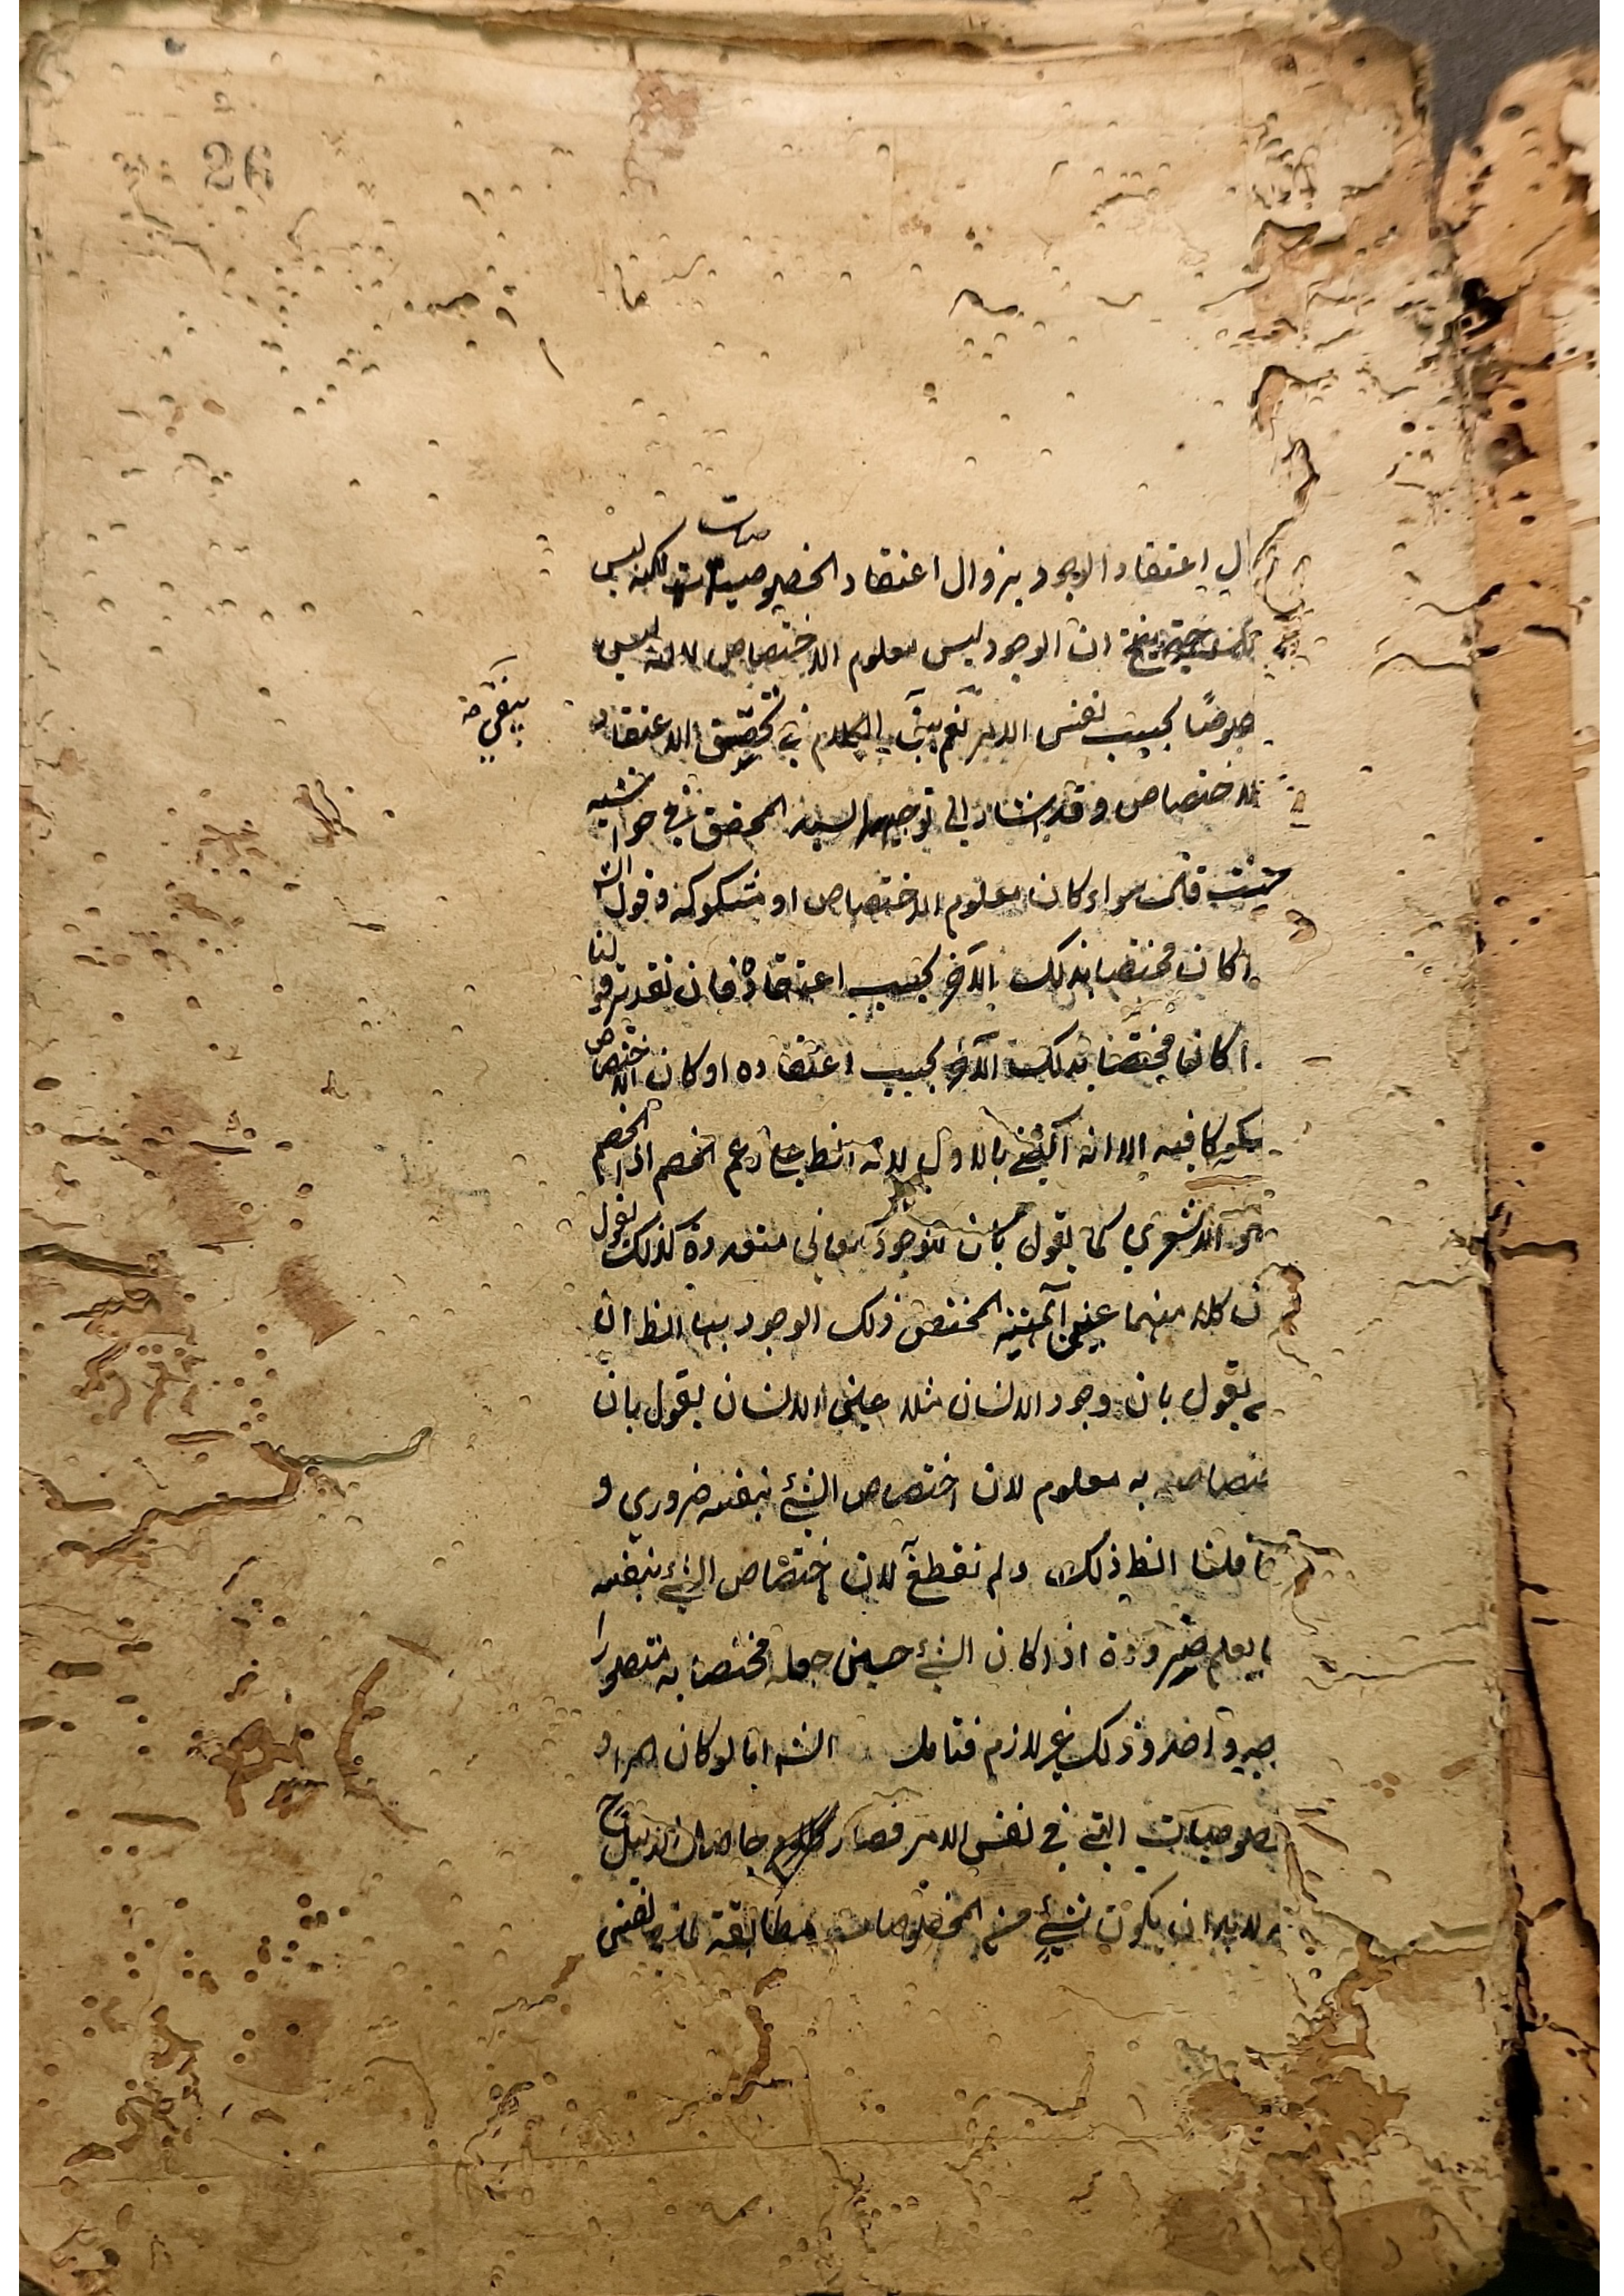 ل اعتقاد الوجود بزوال اعتقاد الخصوصيات لكنه ليس
ان الوجود ليس معلوم الاختصاص لانه ليس
بحسب نفس الامر نعم يبقى الكلام في الاعتقاد
يبقى
الاختصاص وقد اشار الى توجيهه السيد المحقق في حواشيه
حيث قال سواء كان معلوم الاختصاص او مشكوكه وقول
اكان مختصا بذلك الآخر بحسب اعتقاده فان تقدير قولنا
اكان مختصا بذلك الآخر بحسب اعتقاده او كان الاختصاص
مشكوكا فيه الا انه اكتفى بالاول لانه الظ زعم الخصم اذ الخصم
هو الاشعري كما يقول بان للوجود معاني متعددة كذلك يقول
ن كلا منهما عين المهية المختص ذلك الوجود بها الظ ان
يقول بان وجود الانسان مثلا عين الانسان يقول بان
ختصاصه به معلوم لان اختصاص الشئ بنفسه ضروري و
ا قلنا الظ ذلك ولم نقطع لان اختصاص الشئ بنفسه
ا يعلم ضرورة اذا كان الشئ حين جعله مختصا به متصورا
بوجه واحد وذلك غير لازم فتامل الشه اما لو كان المراد
خصوصيات التي في نفس الامر فصار حاصل الدليل ح
لابد ان يكون شئ من الخصوصيات مطابقة لما في نفس